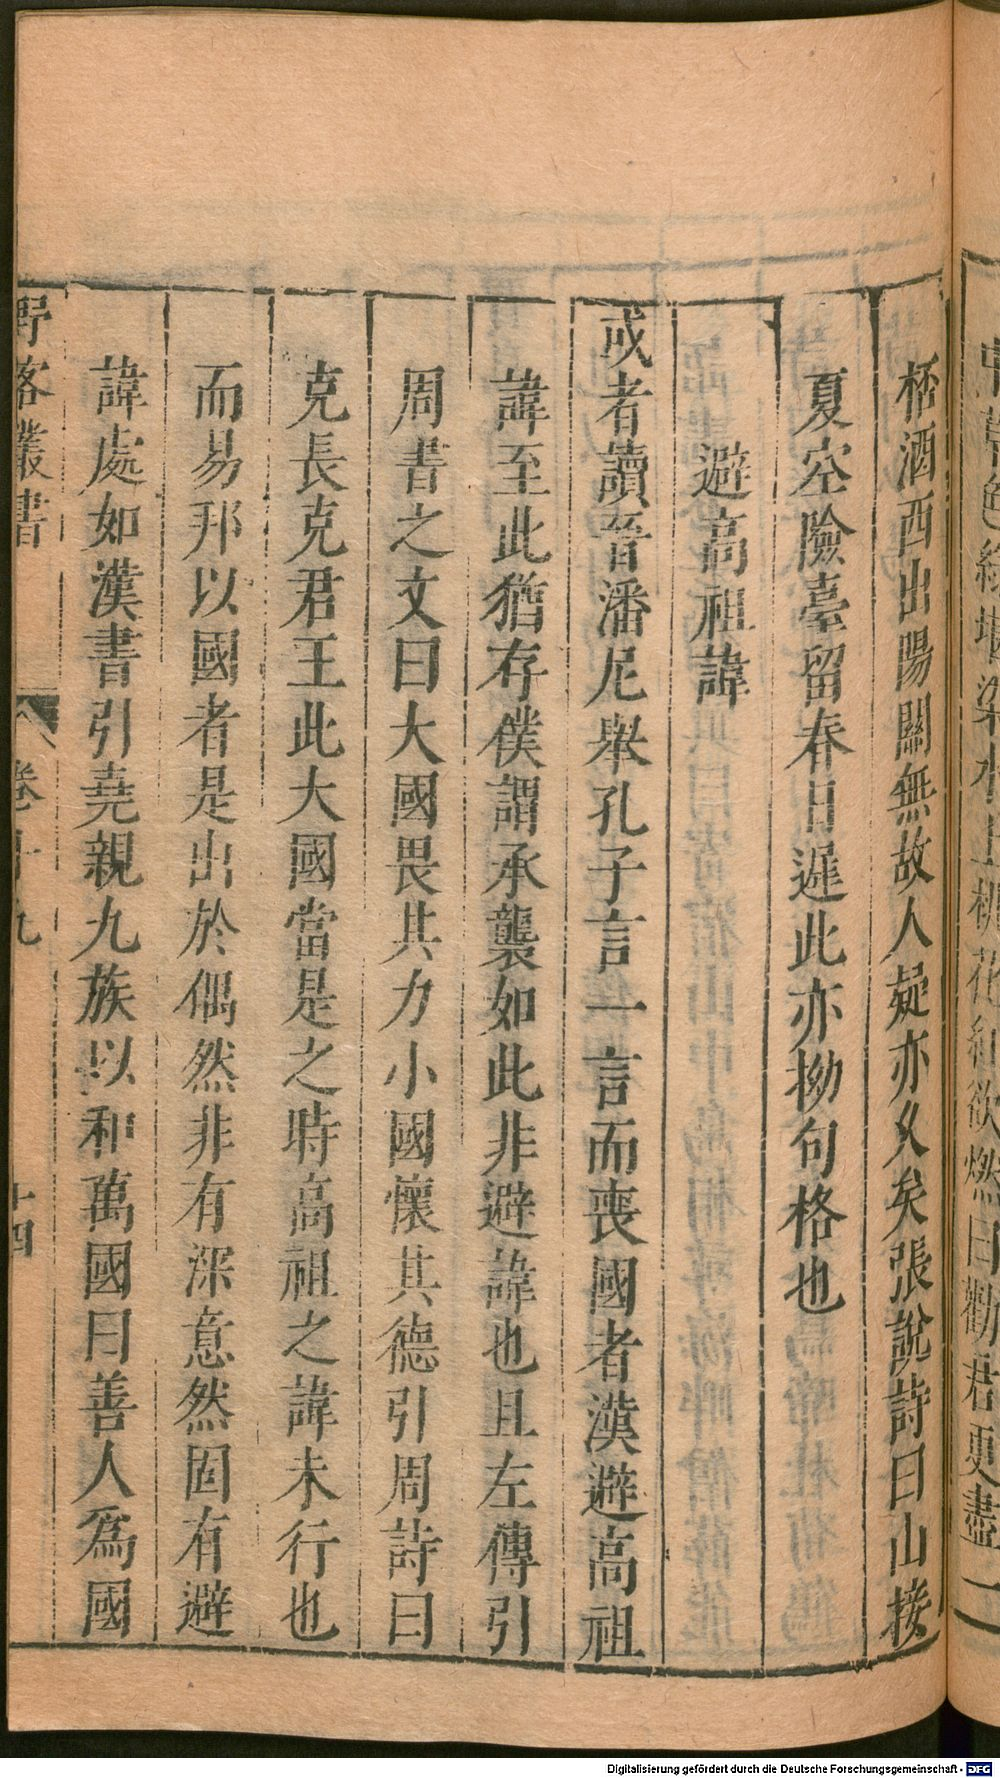 中草色綠堤染水上桃花紅欲燃曰勸君更盡一
桮酒西出陽關無故人疑亦久矣張說詩曰山接
夏空險臺留春日遲此亦拗句格也
避高祖諱
或者讀晉潘尼舉孔子言一言而喪國者漢避高祖
諱至此猶存僕謂承襲如此非避諱也且左傳引
周書之文曰大國畏其力小國懷其德引周詩曰
克長克君王此大國當是之時高祖之諱未行也
而易邦以國者是出於偶然非有深意然固有避
諱處如漢書引堯親九族以和萬國曰善人爲國
野客叢書
卷十九
十四
Digitalisierung gefördert durch die Deutsche Forschungsgemeinschaft - DFG